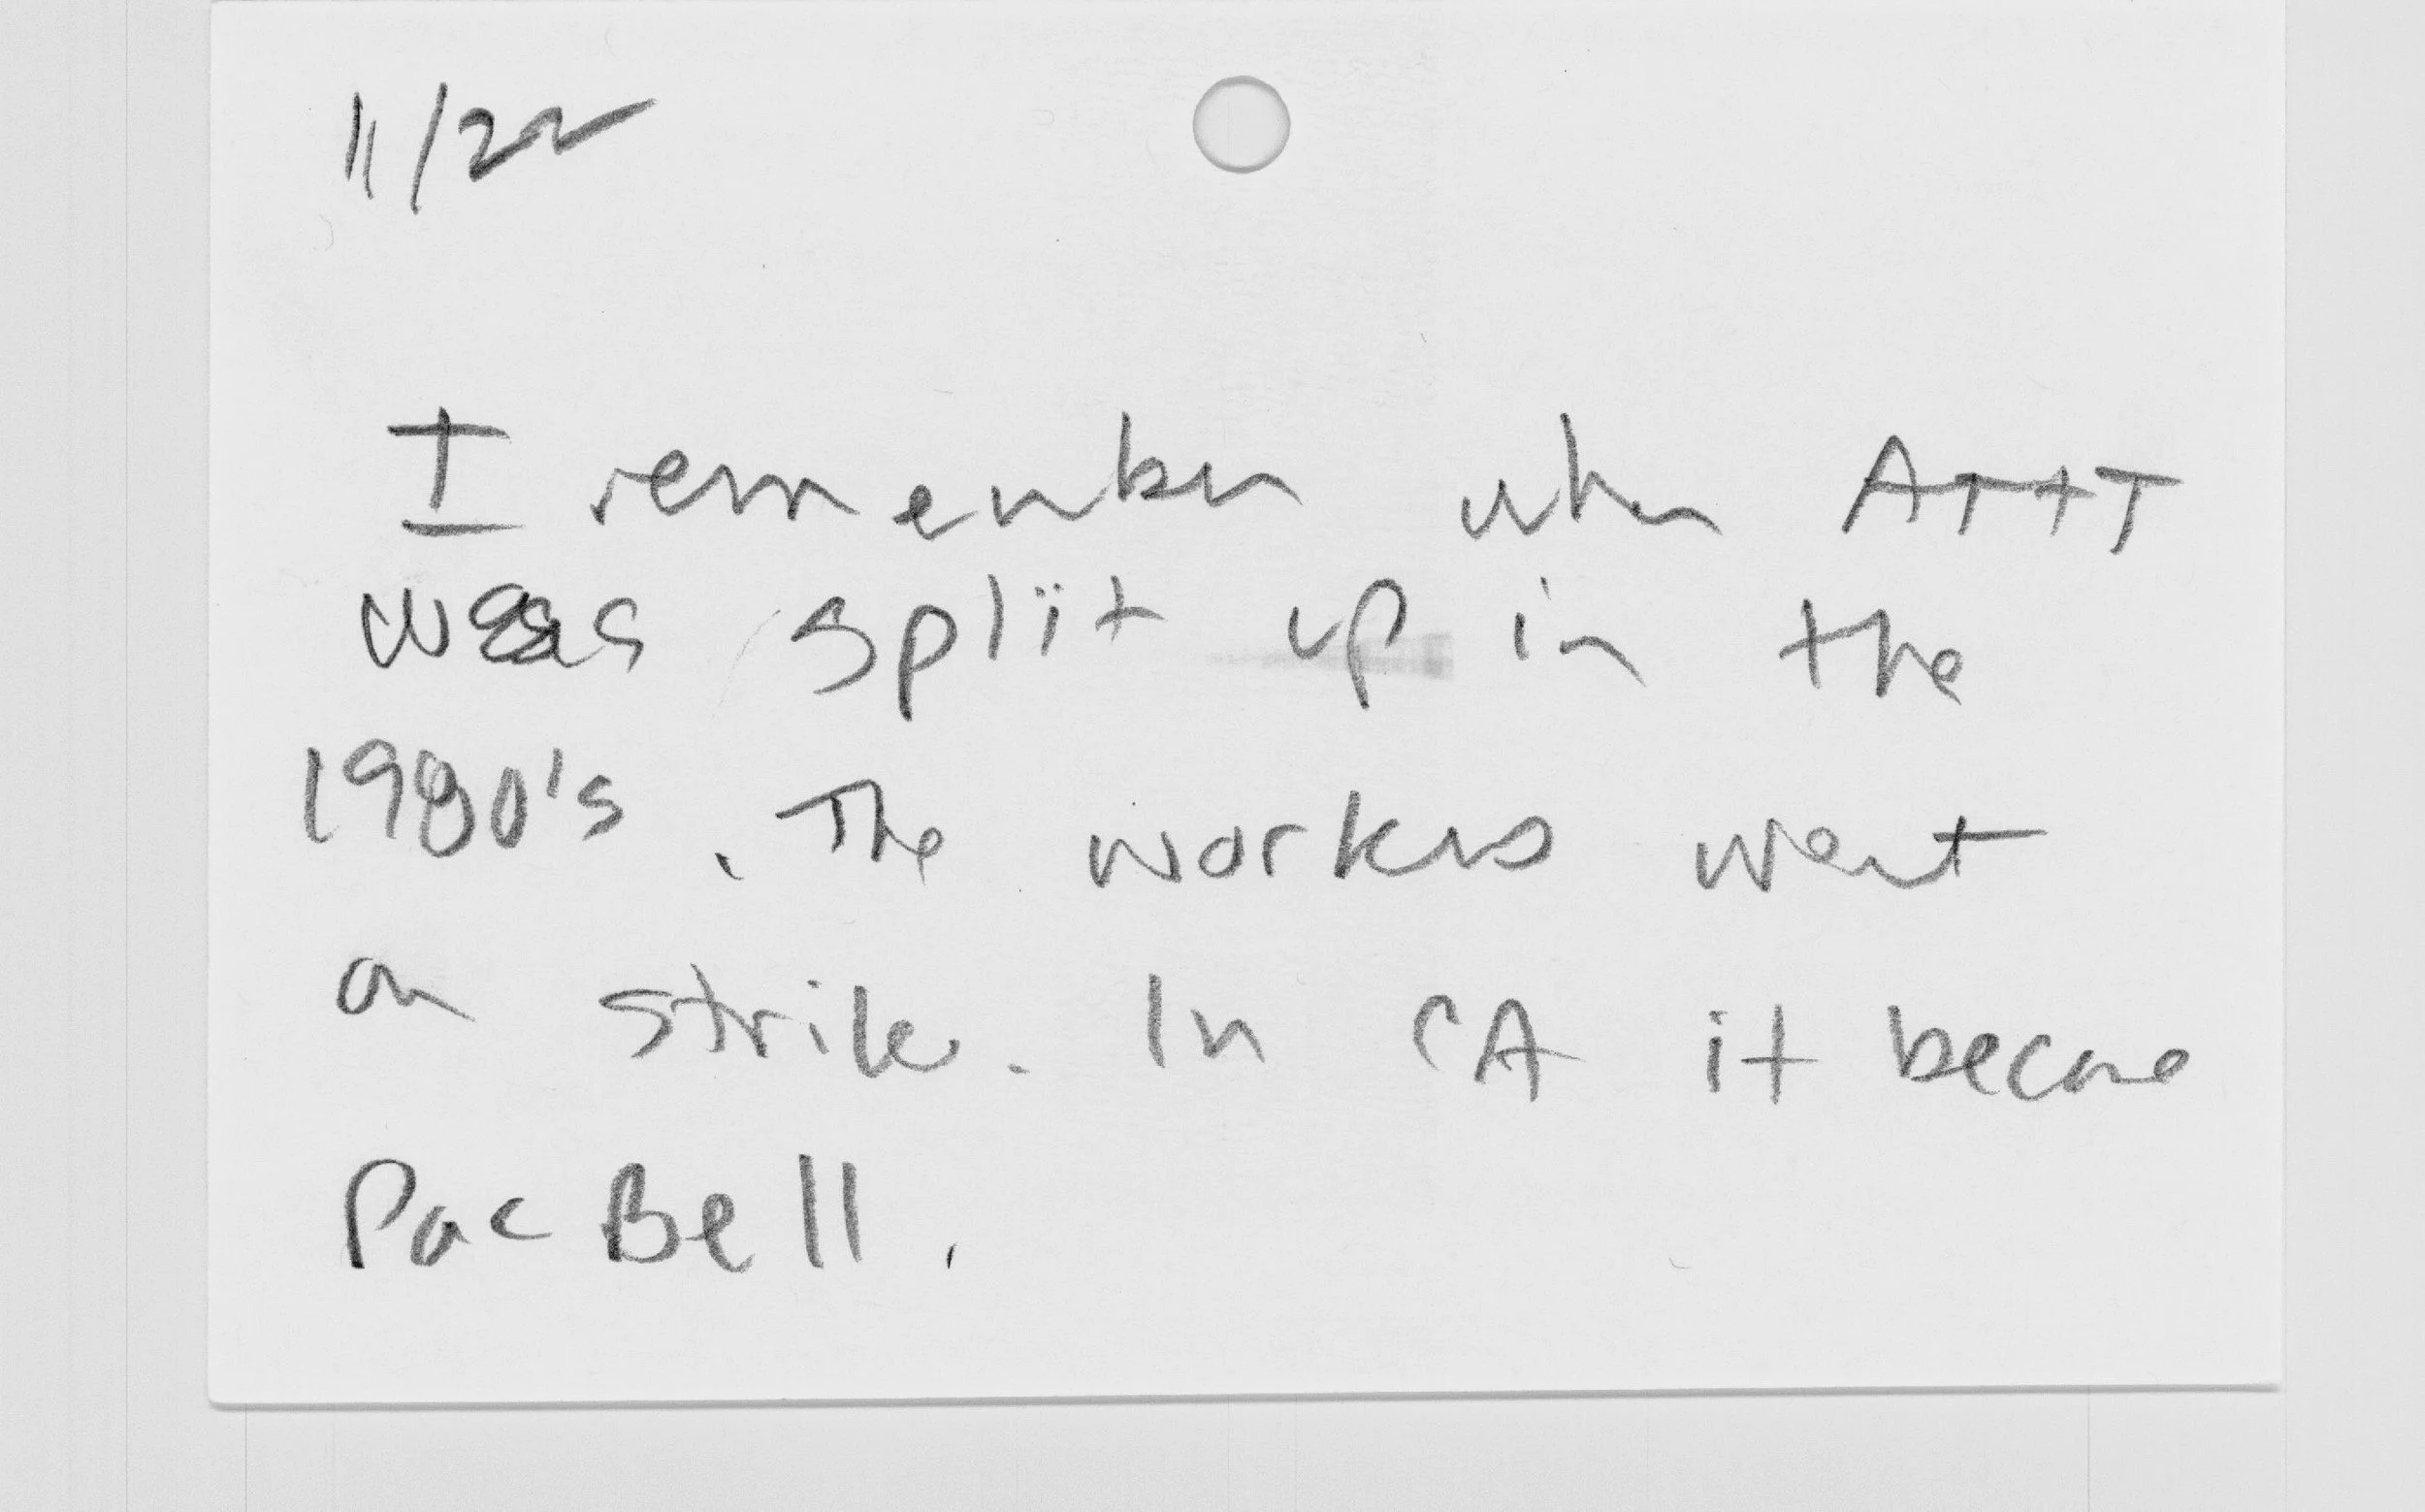 11/22
I remember when AT+T
was split up in the
1980's. The workers went
on strike. In CA it became
Pac Bell.